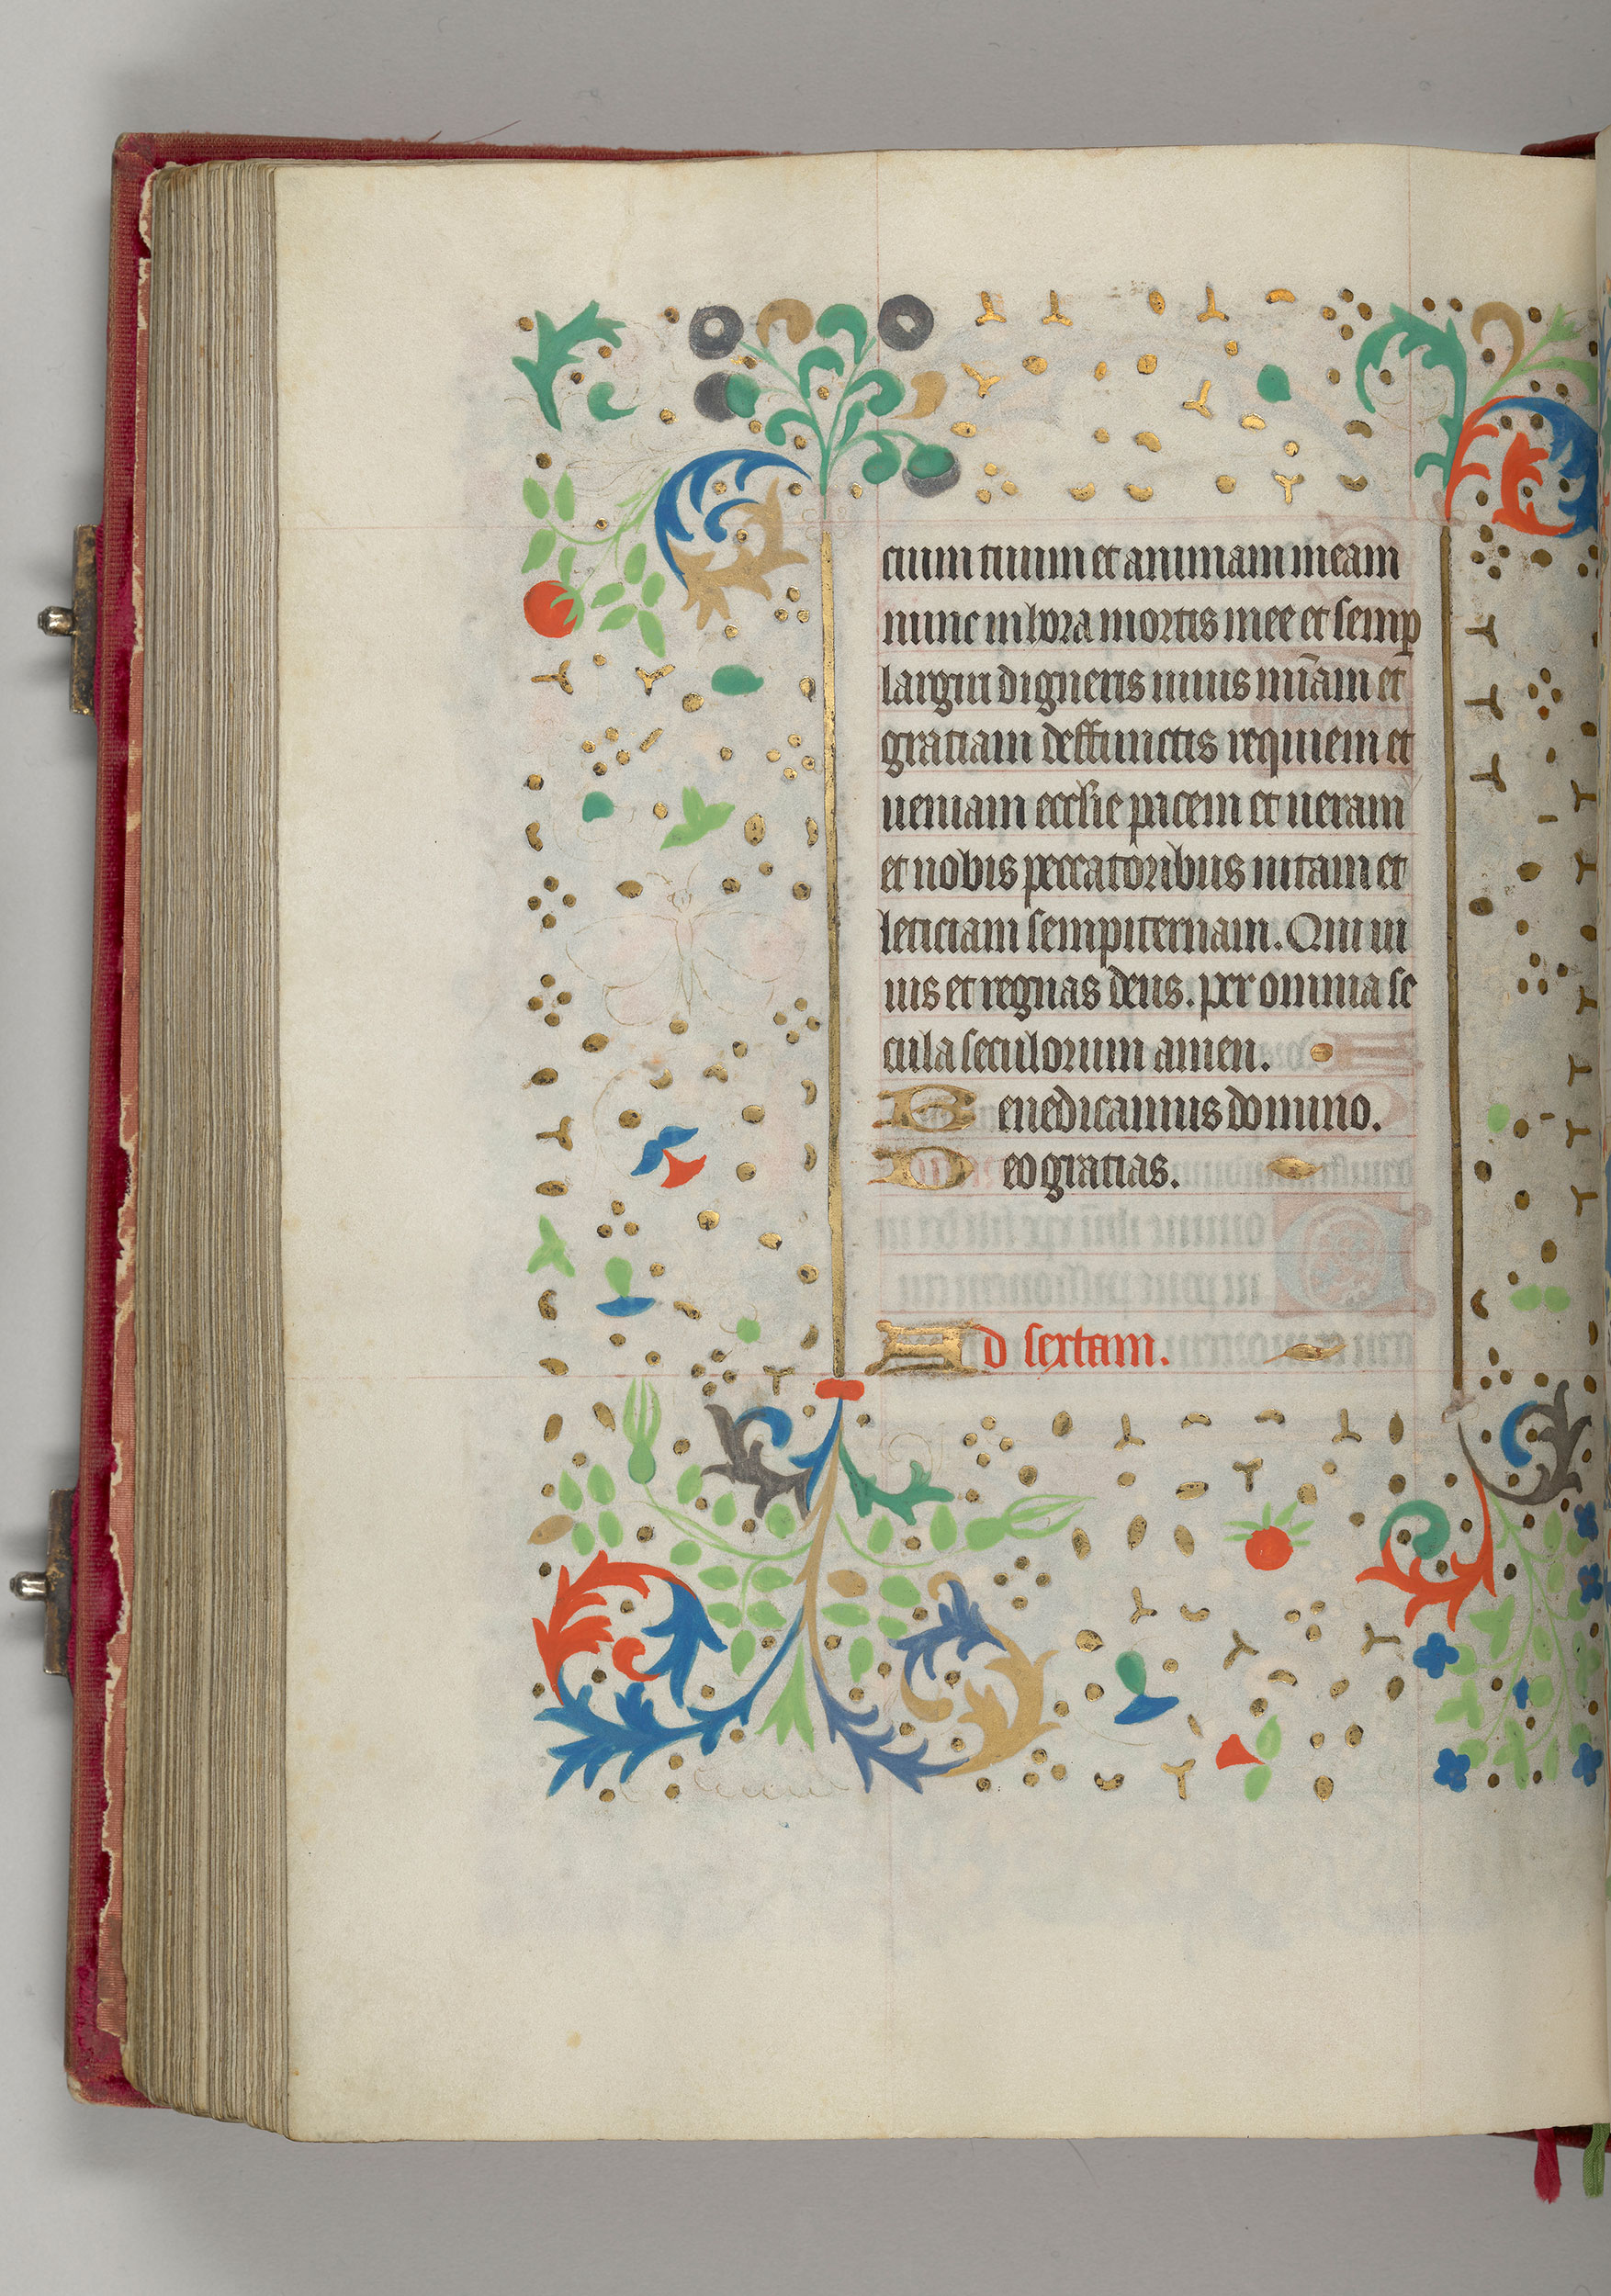 cium tuum et animam meam
nunc in hora mortis mee et semp
largiri digneris uiuis mīam et
gratiam deffunctis requiem et
ueniam ecclsie pacem et ueram
et nobis peccatoribus uitam et
leticiam sempiternam. Qui ui
uis et regnas deus. per omnia se
cula seculorum amen.
Benedicamus domino.
Deo gratias.
Ad sextam.